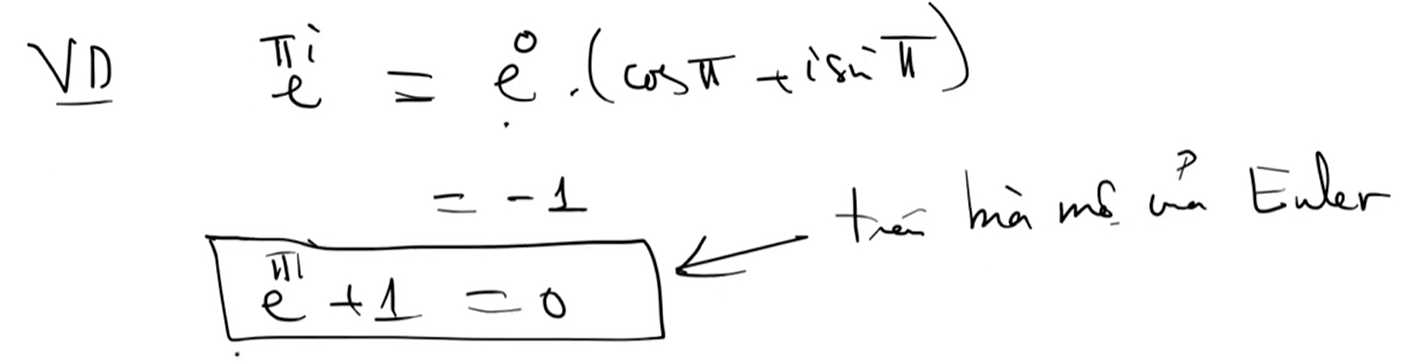 VD e^{πi} = e^0 . (cosπ + i sin π)
= -1
e^{πi} + 1 = 0
trên mà số của Euler